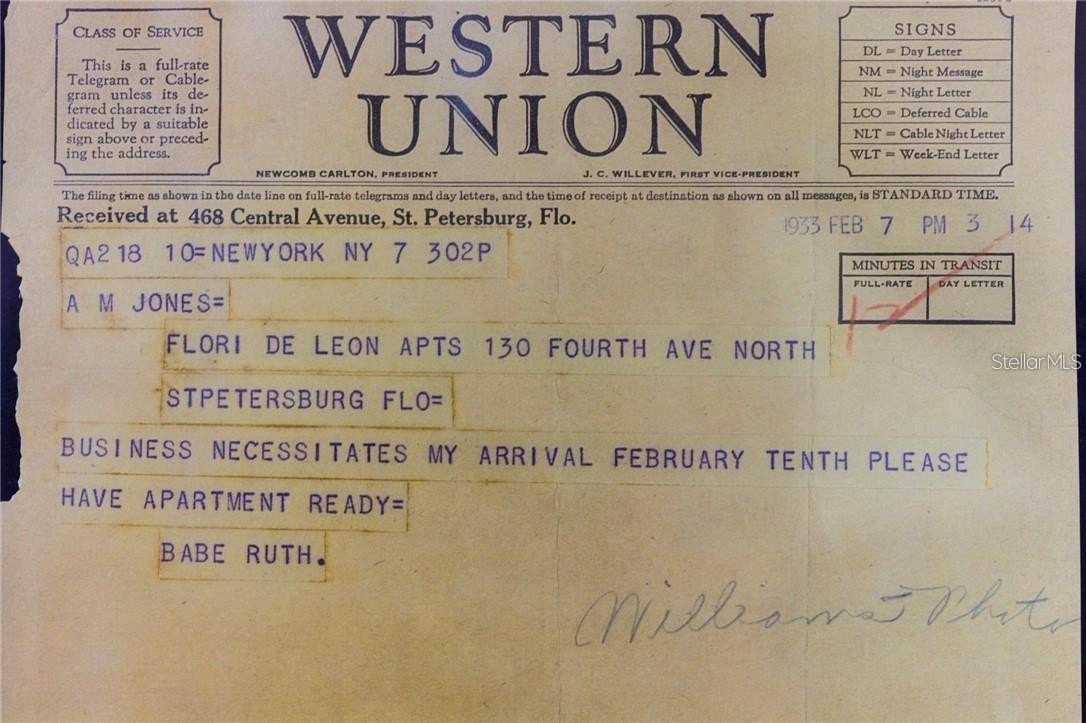 CLASS OF SERVICE
This is a full-rate
Telegram or Cable-
gram unless its de-
ferred character is in-
dicated by a suitable
sign above or preced-
ing the address.
WESTERN
UNION
NEWCOMB CARLTON, PRESIDENT
J. C. WILLEVER, FIRST VICE-PRESIDENT
SIGNS
DL = Day Letter
NM = Night Message
NL = Night Letter
LCO = Deferred Cable
NLT = Cable Night Letter
WLT = Week-End Letter
The filing time as shown in the date line on full-rate telegrams and day letters, and the time of receipt at destination as shown on all messages, is STANDARD TIME.
Received at 468 Central Avenue, St. Petersburg, Flo.
1933 FEB 7 PM 3 14
QA218 10=NEWYORK NY 7 302P
MINUTES IN TRANSIT
FULL-RATE DAY LETTER
12
A M JONES=
FLORI DE LEON APTS 130 FOURTH AVE NORTH
StellarMLS
STPETERSBURG FLO=
BUSINESS NECESSITATES MY ARRIVAL FEBRUARY TENTH PLEASE
HAVE APARTMENT READY=
BABE RUTH.
Williams Photo